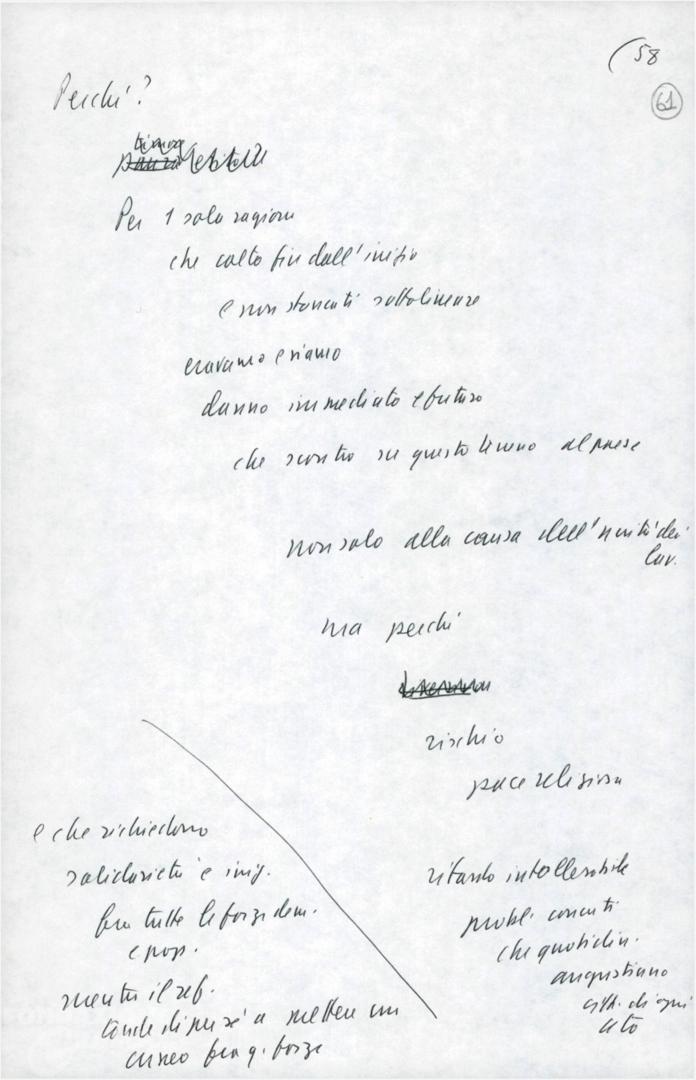 (58
61
Perché?
Per 1 sola ragione
che colto fin dall'inizio
e non stancati sottolineare
eravamo e siamo
danno immediato e futuro
che scontro su questo terreno al paese
non solo alla causa dell'unità dei
lav.
ma perché
rischio
pace religiosa
e che richiedono
solidarietà e
fra tutte le forze dem.
e pop.
ritardo intollerabile
probl. concreti
che quotidian.
angustiano
citt. di ogni
ceto
mentre il ref.
tende di per sé a mettere un
cuneo fra q. forze